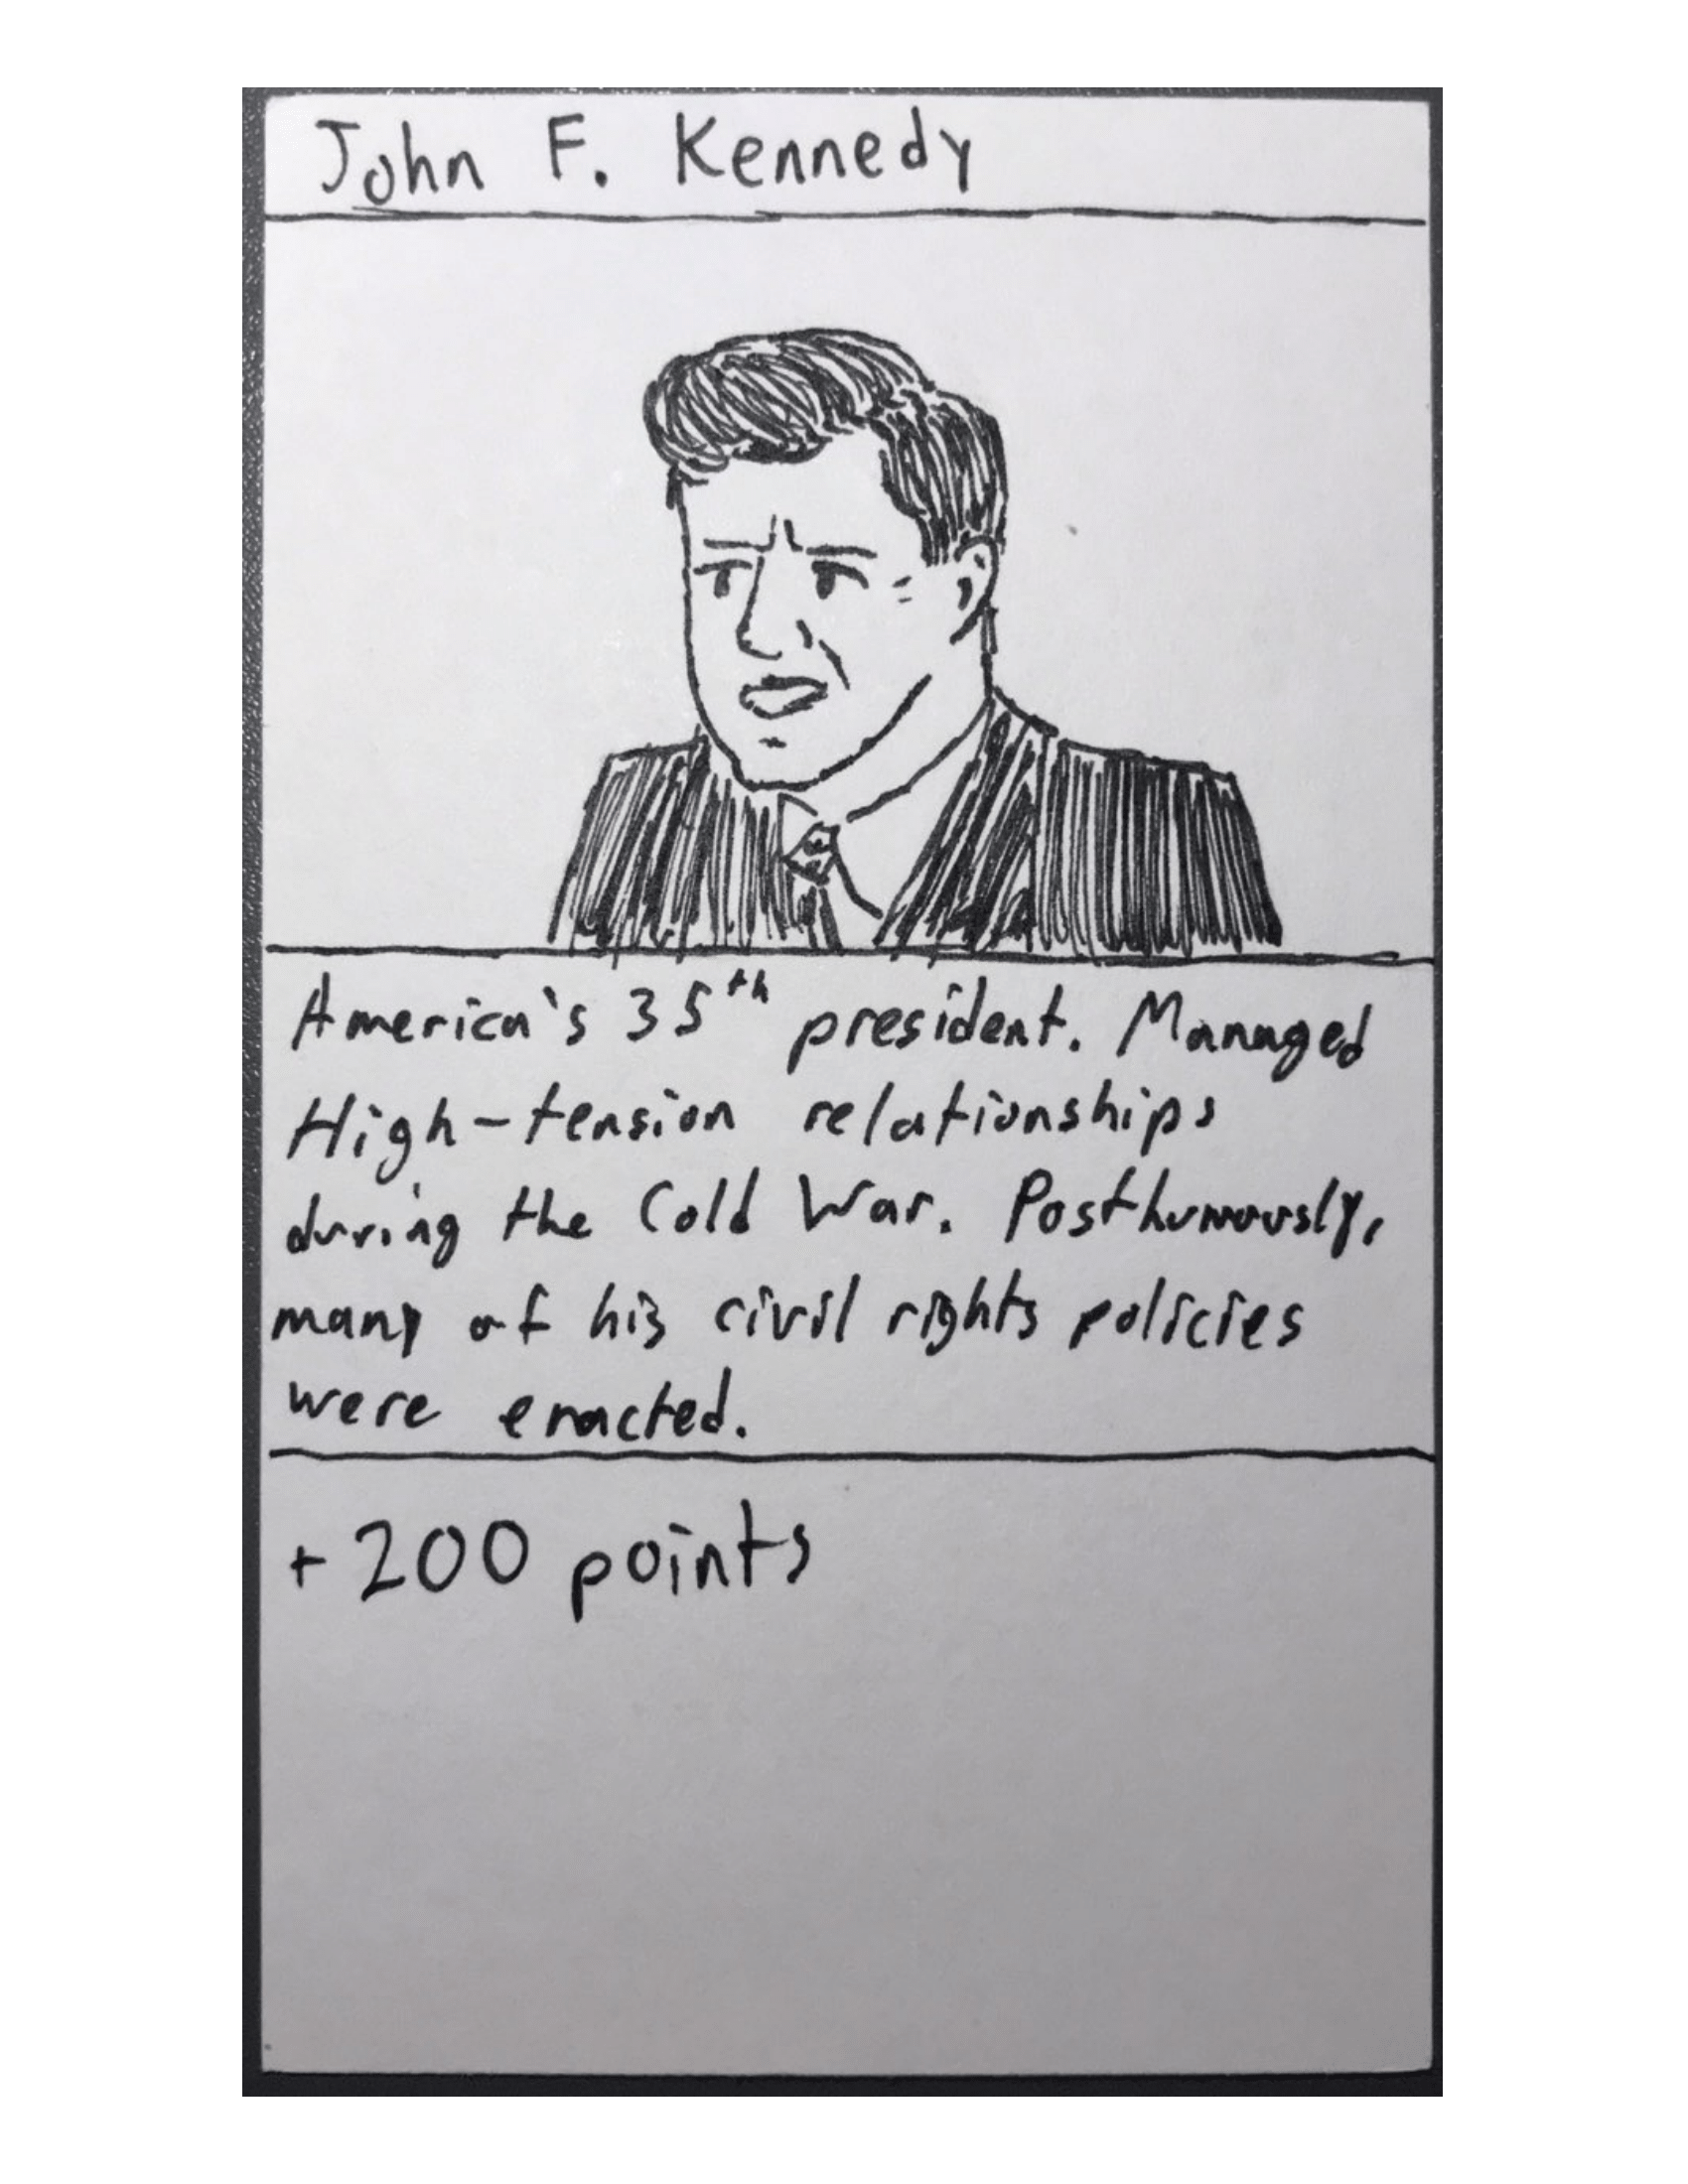 John F. Kennedy
America's 35th president. Managed
High-tension relationships
during the Cold War. Posthumously,
many of his civil rights policies
were enacted.
+200 points